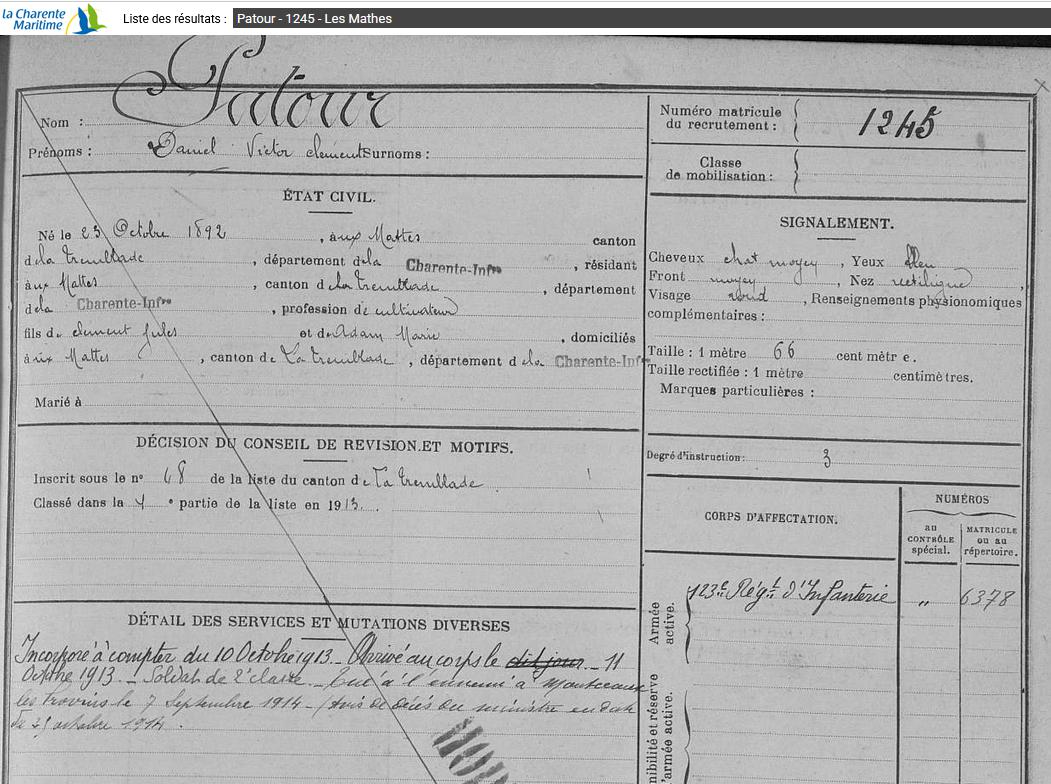 la Charente Maritime
Liste des résultats : Patour - 1245 - Les Mathes
Patour
Nom :
Prénoms : Daniel Victor clement Surnoms :
Numéro matricule du recrutement : 1245
Classe de mobilisation :
ÉTAT CIVIL.
Né le 23 Octobre 1892, aux Mattes canton
de la Tremblade, département de la Charente-Infre, résidant
aux Mattes, canton de La Tremblade, département
de la Charente-Infre, profession de cultivateur
fils de clement Jules et de Adam Marie, domiciliés
aux Mattes, canton de La Tremblade, département de la Charente-Infre
Marié à
SIGNALEMENT.
Cheveux chat moyen, Yeux bleu
Front moyen, Nez rectiligne,
Visage rond, Renseignements physionomiques
complémentaires :
Taille : 1 mètre 66 cent mètr e.
Taille rectifiée : 1 mètre centimètres.
Marques particulières :
DÉCISION DU CONSEIL DE REVISION ET MOTIFS.
Inscrit sous le no 48 de la liste du canton de La Tremblade
Classé dans la 1e partie de la liste en 1913.
Degré d'instruction : 3
CORPS D'AFFECTATION.
NUMÉROS
au CONTRÔLE spécial.
MATRICULE ou au répertoire.
Armée active.
123e Régt d'Infanterie „ 6378
DÉTAIL DES SERVICES ET MUTATIONS DIVERSES
Incorporé à compter du 10 Octobre 1913. _ Arrivé au corps le dit jour. _ 11
Octobre 1913. _ Soldat de 2e classe. _ Tué à l'ennemi à Montceaux
les Provins le 7 Septembre 1914 - (Avis de décès du ministre en date
du 29 octobre 1914.
nibilité et réserve
'armée active.